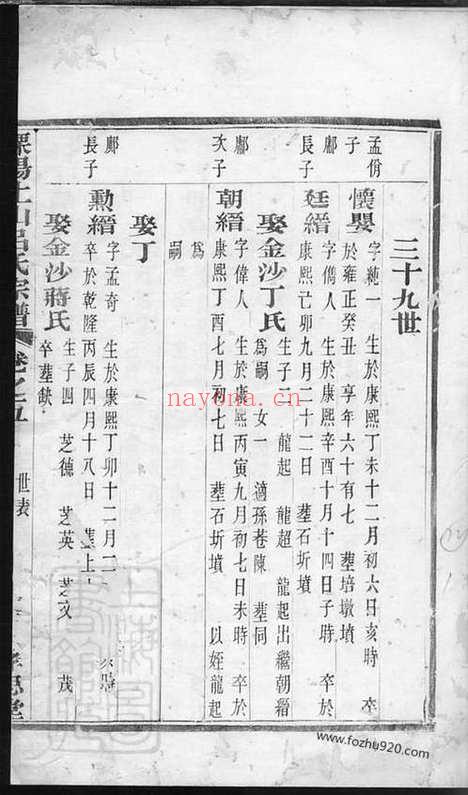 三十九世
孟份子
懷嬰
字純一 生於康熙丁未十二月初六日亥時 卒
於雍正癸丑 享年六十有七 葬培墩墳
鄘長子
廷縉
字儁人 生於康熙辛酉十月十四日子時 卒於
康熙己卯九月二十二日 葬石圻墳
娶金沙丁氏
生子二 龍起 龍超 龍起出繼朝縉
為嗣 女一 適孫巷陳 葬同
鄘次子
朝縉
字偉人 生於康熙丙寅九月初七日未時 卒於
康熙丁酉七月初七日 葬石圻墳 以姪龍起
為
嗣
娶丁
鄘長子
勳縉
字孟奇 生於康熙丁卯十二月二
卒於乾隆丙辰四月十八日 葬上
娶金沙蔣氏
生子四 芝德 芝英 芝文 茂
卒葬缺
溧陽上山呂氏宗譜 卷之五 世表
nayona.cn
www.fozhu920.com